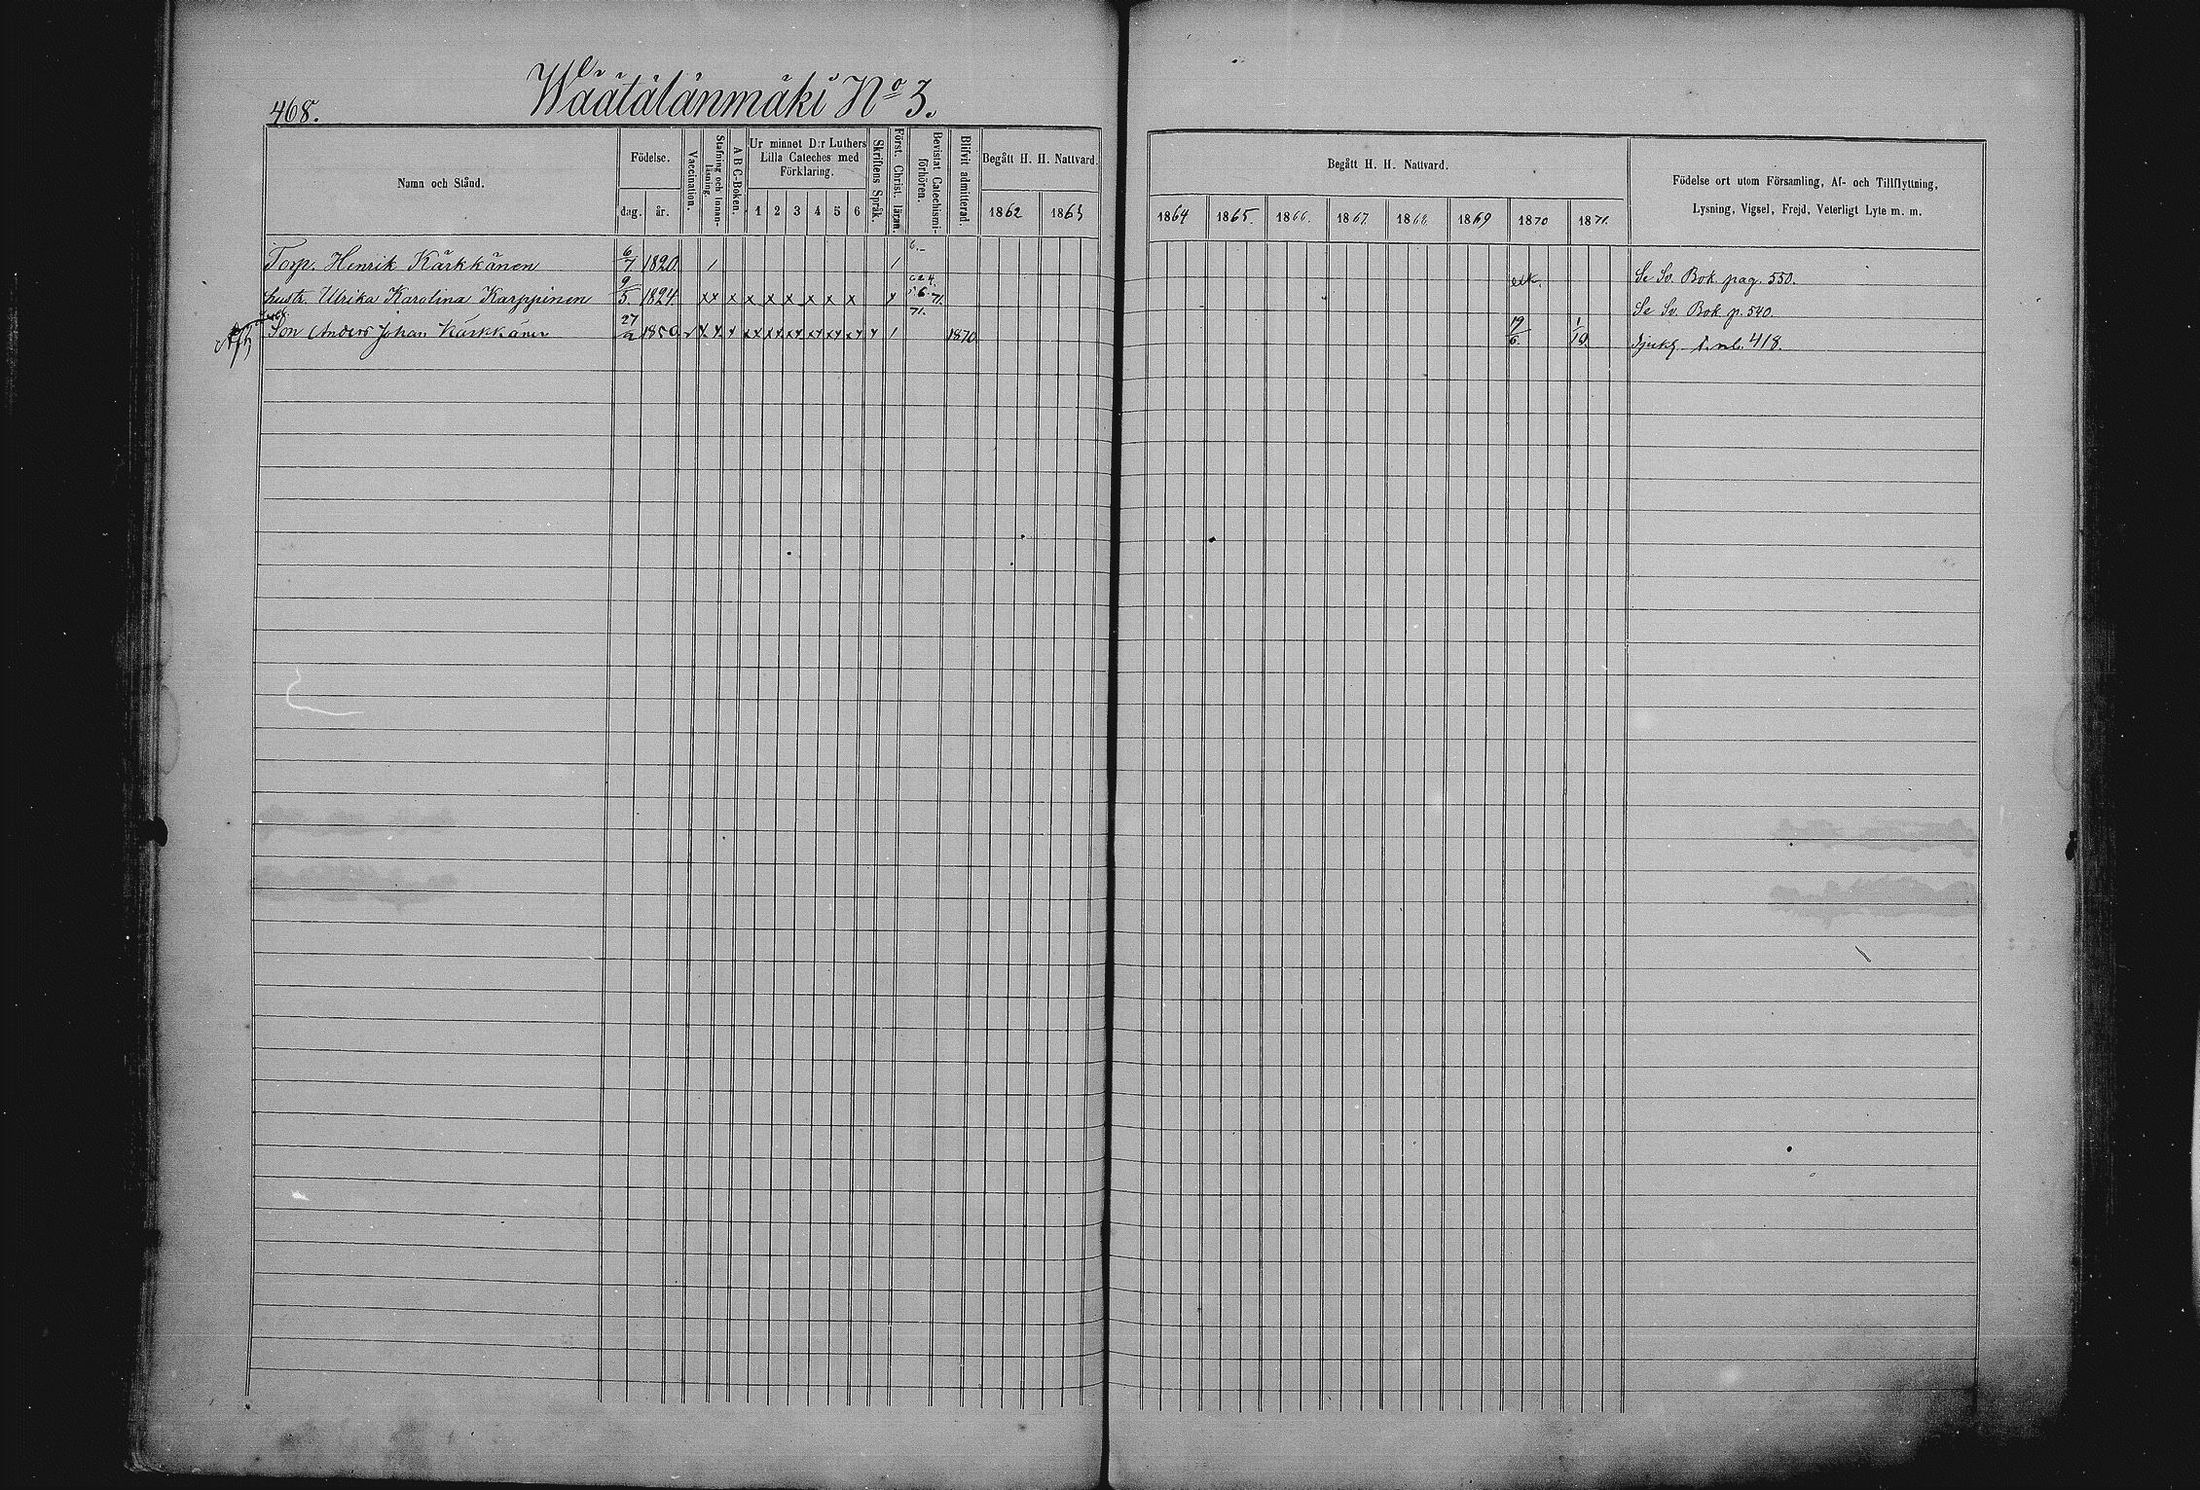 468.
Wäätälänmäki No 3.
Namn och Stånd.
Födelse.
dag. år.
Vaccination.
Stafning och Innanläsning
A B C-Boken.
Ur minnet D:r Luthers
Lilla Cateches med
Förklaring.
1 2 3 4 5 6
Skriftens Språk.
Först. Christ. läran.
Bevistat Catechismiförhören.
Blifvit admitterad.
Begått H. H. Nattvard.
1862 1863
Torp. Henrik Kärkkänen 6/7 1820
hustr. Ulrika Karolina Karppinen 9/5. 1824 x x x x x x x x x x 71.
Son Anders Johan Kärkkänen 27/2 1850 1870
Begått H. H. Nattvard.
1864 1865. 1866. 1867. 1868. 1869 1870 1871.
Födelse ort utom Församling, Af- och Tillflyttning,
Lysning, Vigsel, Frejd, Veterligt Lyte m. m.
Se Sv. Bok. pag. 550.
Se Sv. Bok p. 540
19/6. 1/10. 418.